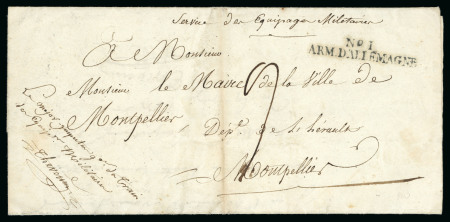 Service des Equipages Militaires
No 1
ARM. D'ALLEMAGNE
À Monsieur
Monsieur le Maire de la Ville de
Montpellier, Dépt. de l'hérault
Montpellier
Le major
des Equipages militaires